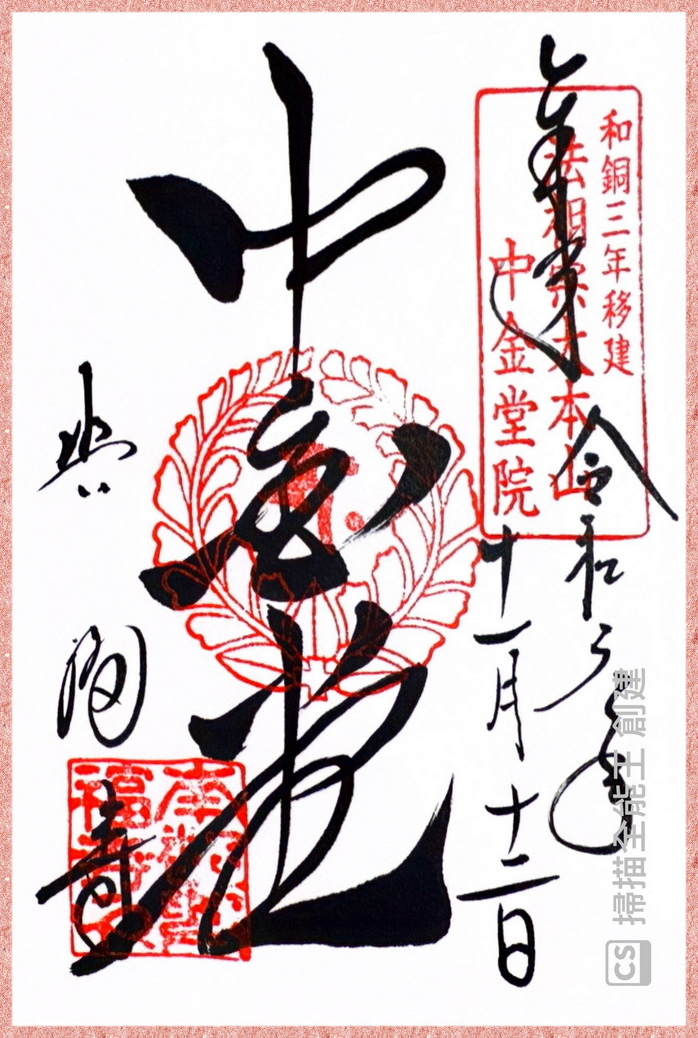 和銅三年移建
法相宗大本山
中金堂院
奉拝
令和二年
十一月十二日
中金堂
興
福
寺
南都
CS 掃描全能王 創建